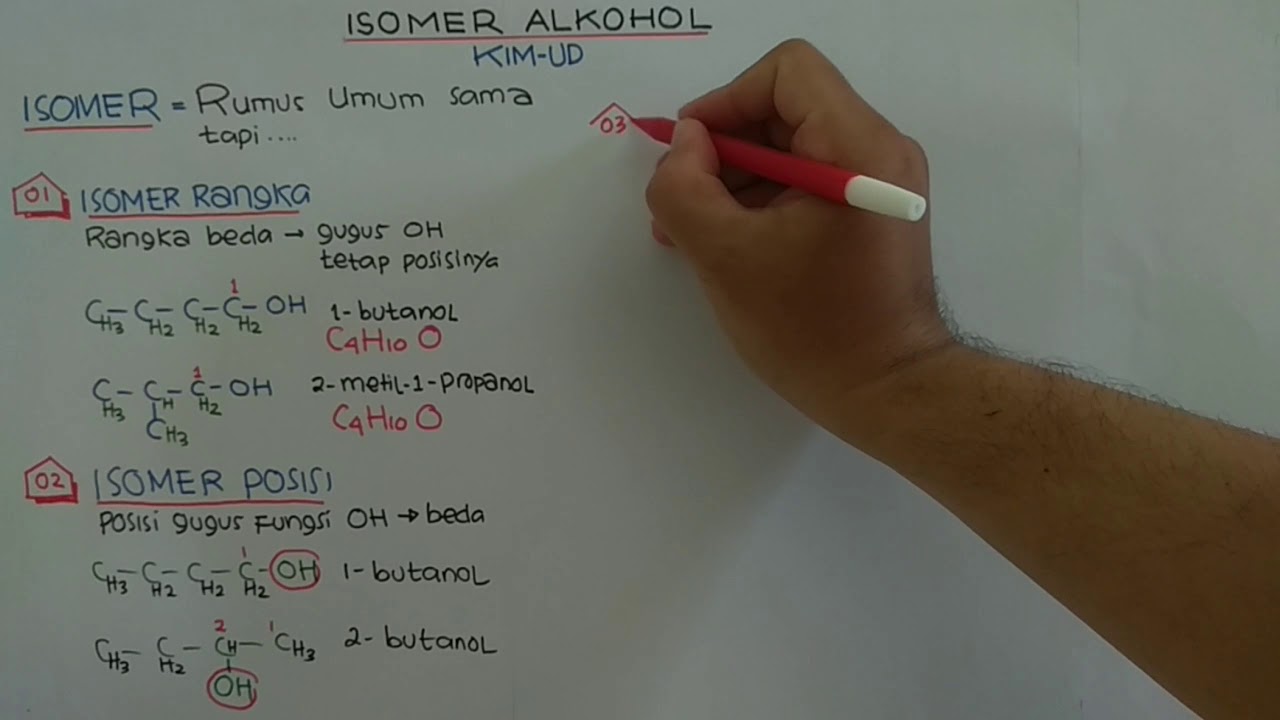 ISOMER ALKOHOL
KIM-UD
ISOMER = Rumus Umum sama
tapi....
01 ISOMER Rangka
Rangka beda → gugus OH
tetap posisinya
1
CH3-CH2-CH2-CH2-OH 1-butanol
C4H10O
1
CH3-CH-CH2-OH 2-metil-1-propanol
CH3
C4H10O
02 ISOMER POSISI
Posisi gugus Fungsi OH → beda
1
CH3-CH2-CH2-CH2-OH 1-butanol
2 1
CH3-CH2-CH-CH3 2-butanol
OH
03